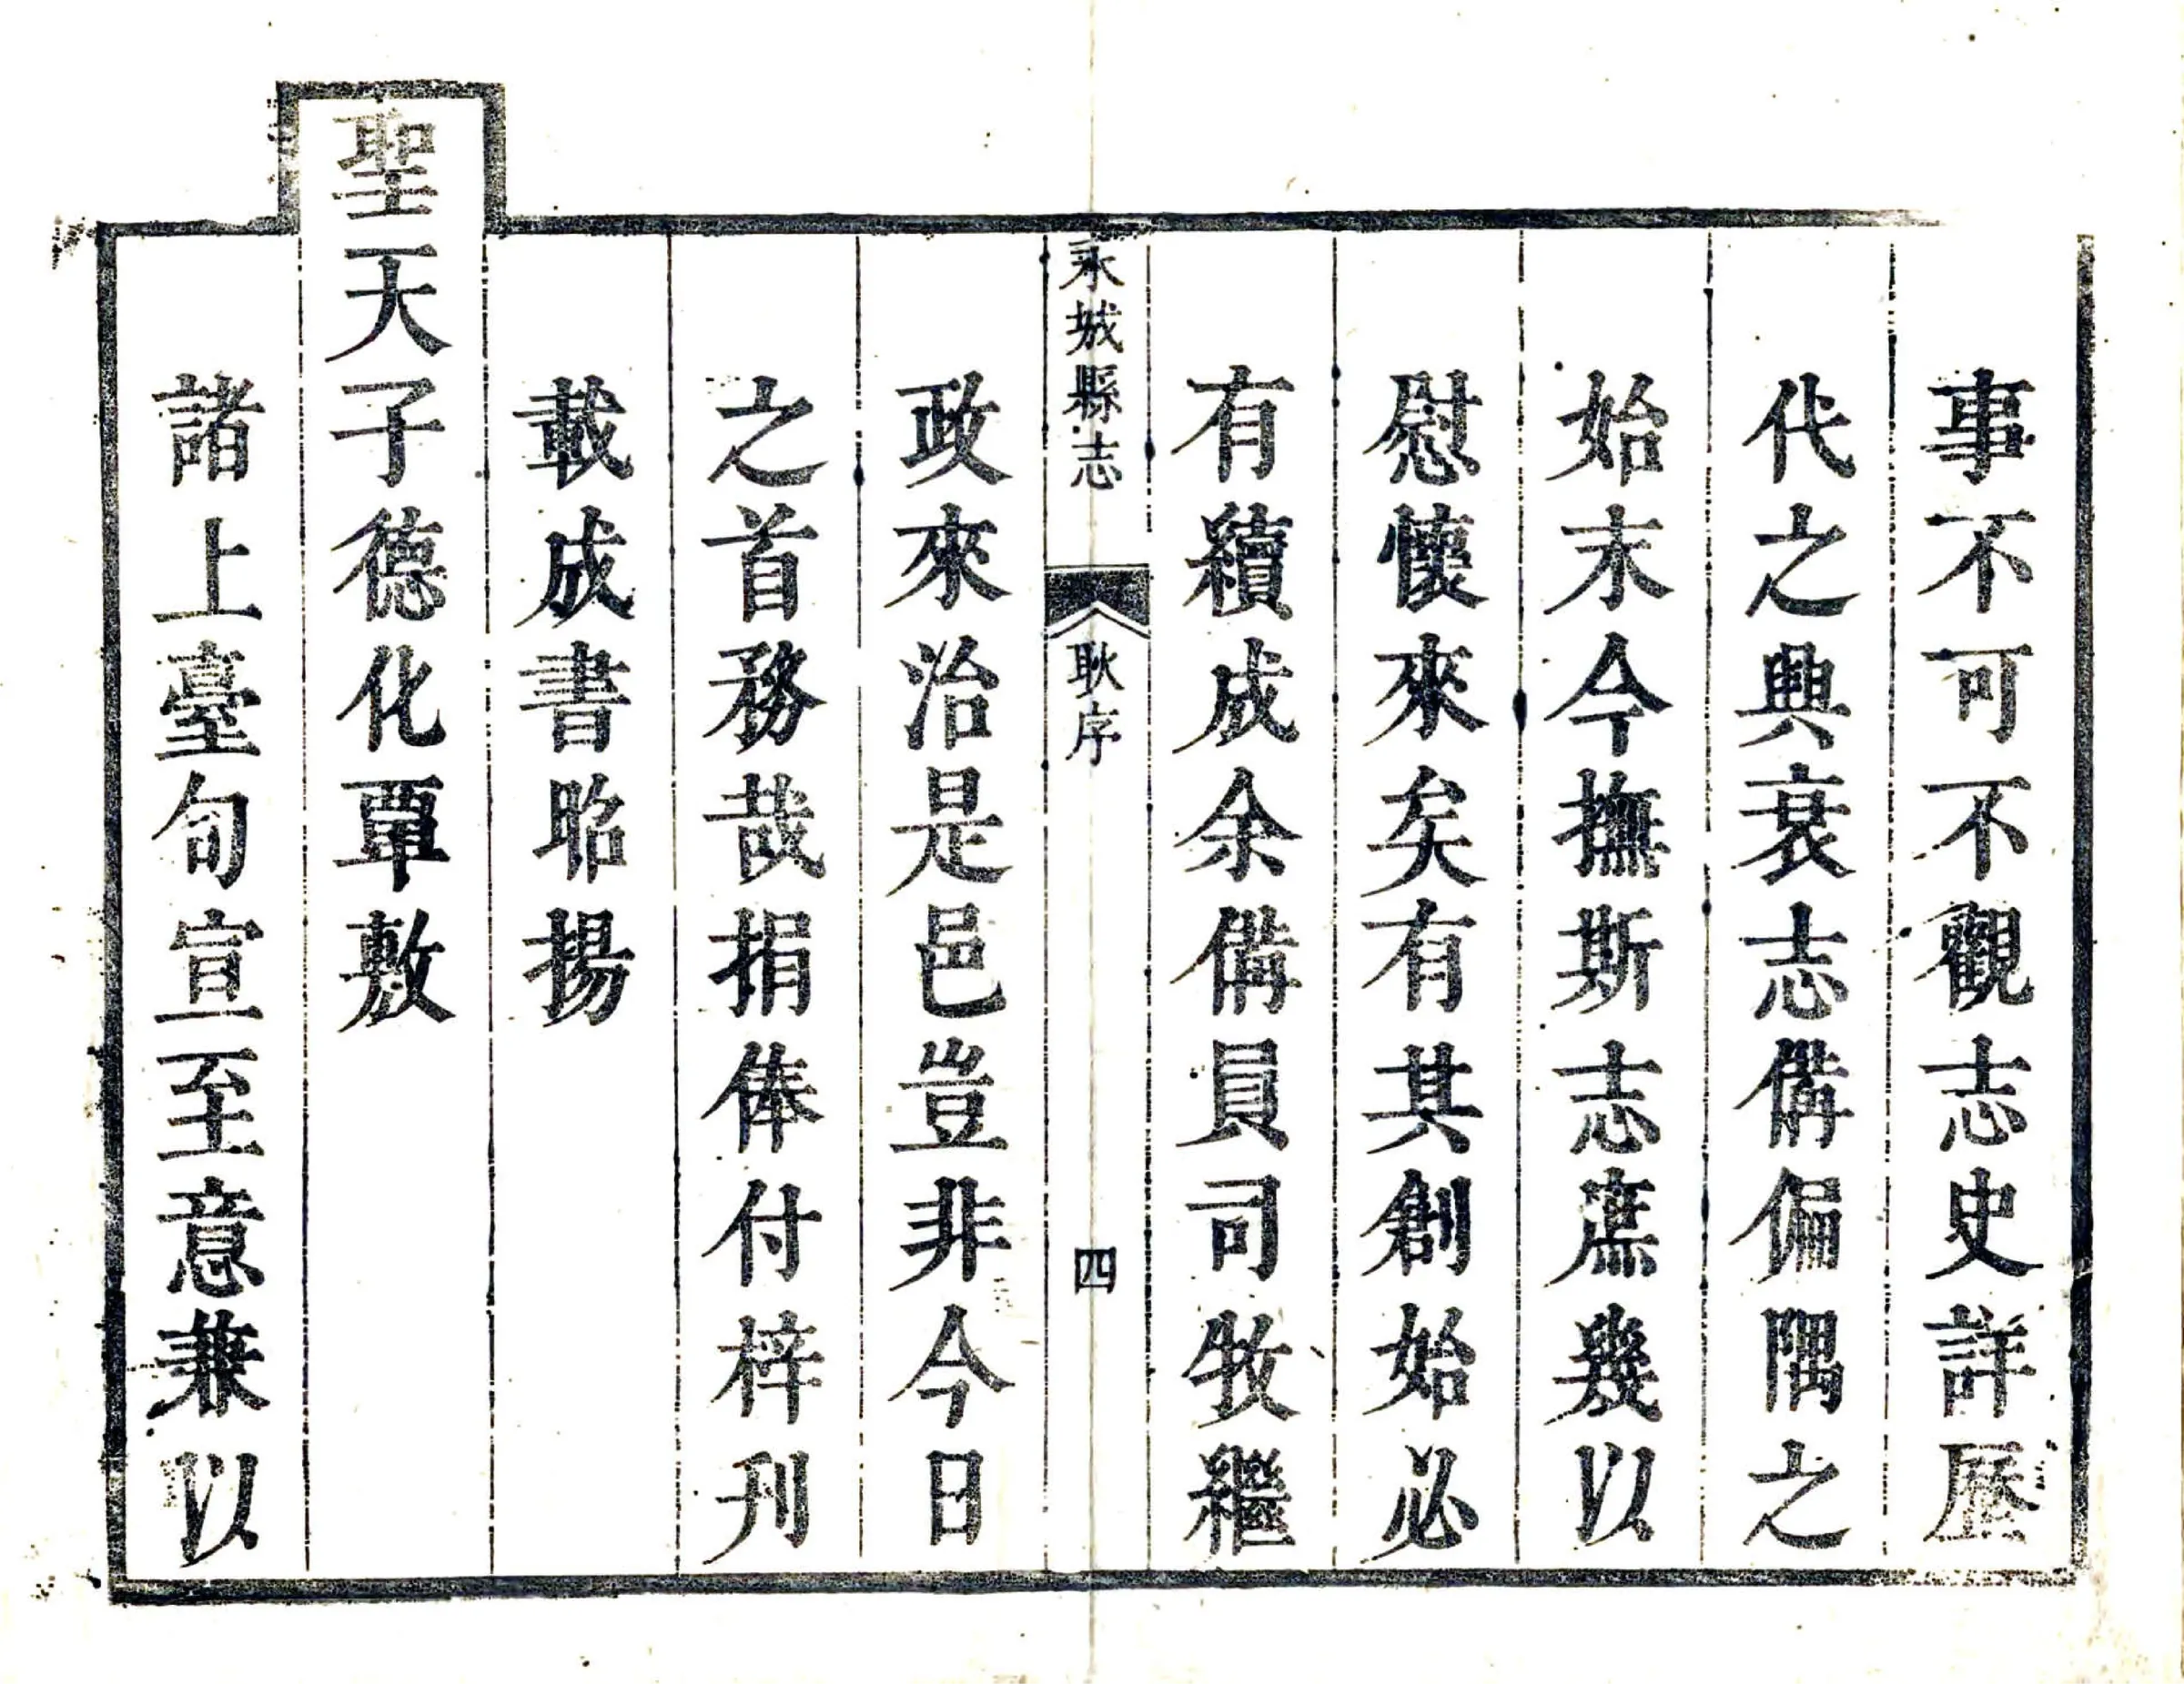 事不可不觀志史詳歷
代之興衰志備偏隅之
始末今撫斯志庶幾以
慰懷來矣有其創始必
有續成余備員司牧繼
永城縣志 耿序 四
政來治是邑豈非今日
之首務哉捐俸付梓刊
載成書昭揚
聖天子德化覃敷
諸上臺旬宣至意兼以